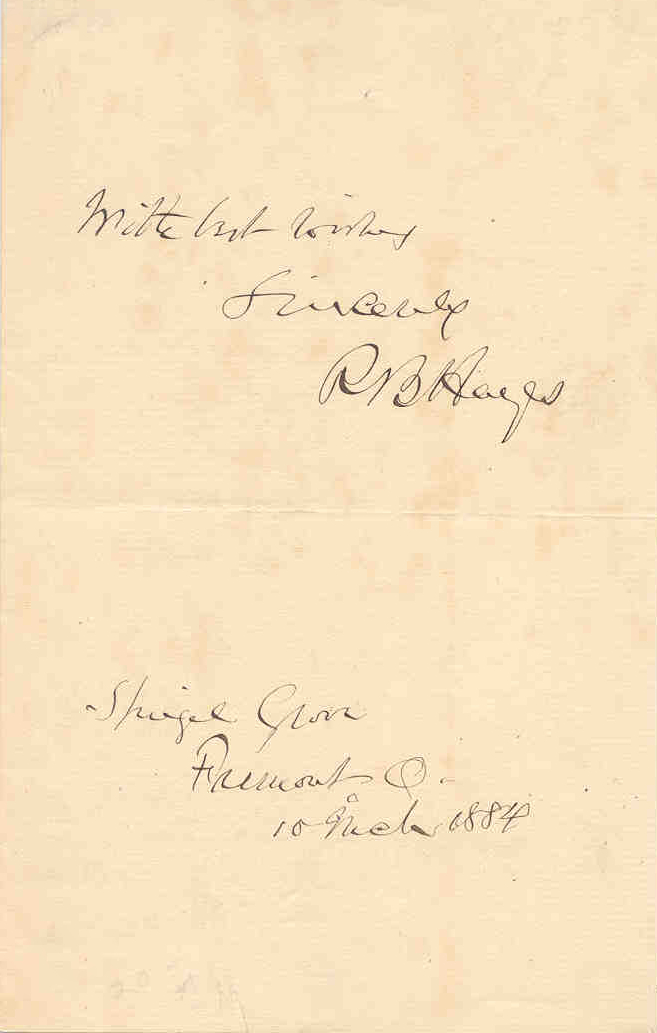 With best wishes
Sincerely
R B Hayes
Spiegel Grove
Fremont O.
10 Mch 1884